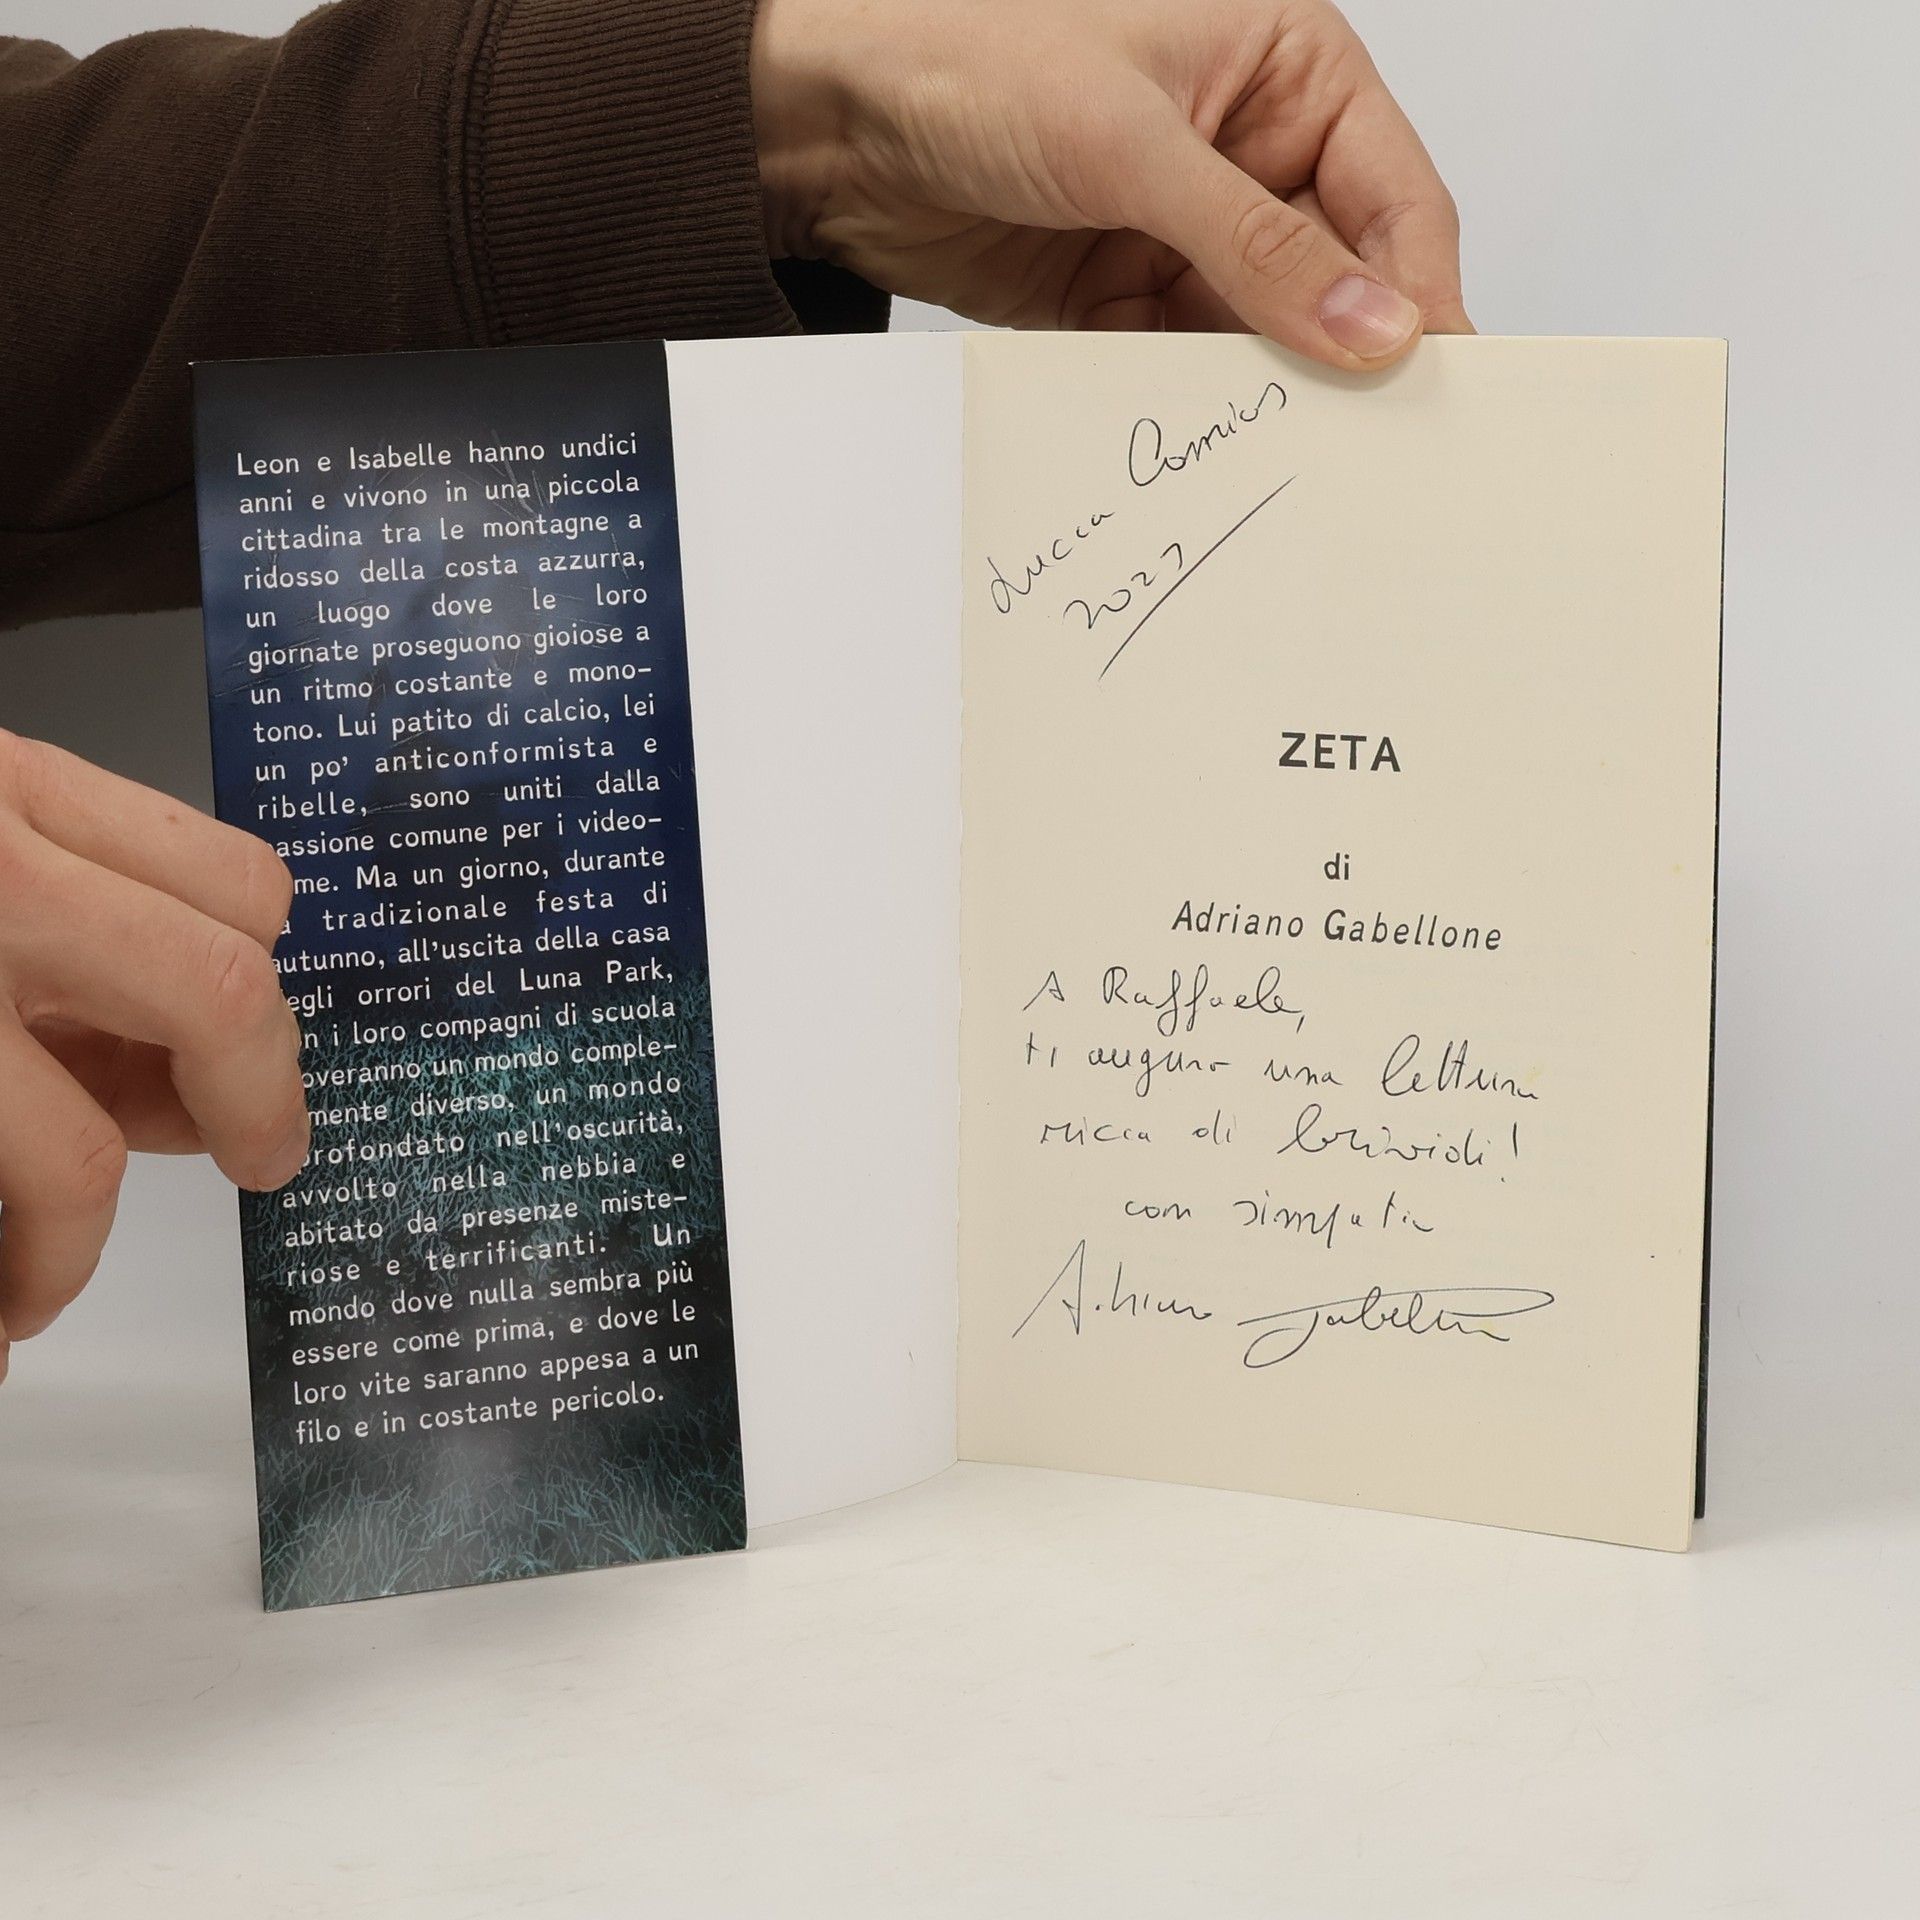 Leon e Isabelle hanno undici
anni e vivono in una piccola
cittadina tra le montagne a
ridosso della costa azzurra,
un luogo dove le loro
giornate proseguono gioiose a
un ritmo costante e mono-
tono. Lui patito di calcio, lei
un po' anticonformista e
ribelle, sono uniti dalla
assione comune per i video-
me. Ma un giorno, durante
a tradizionale festa di
autunno, all'uscita della casa
egli orrori del Luna Park,
n i loro compagni di scuola
overanno un mondo comple-
mente diverso, un mondo
profondato nell'oscurità,
avvolto nella nebbia e
abitato da presenze miste-
riose e terrificanti. Un
mondo dove nulla sembra più
essere come prima, e dove le
loro vite saranno appesa a un
filo e in costante pericolo.
Lucca Comics
2023
ZETA
di
Adriano Gabellone
A Raffaele,
ti auguro una lettura
ricca di brividi!
con simpatia
Adriano Gabellone